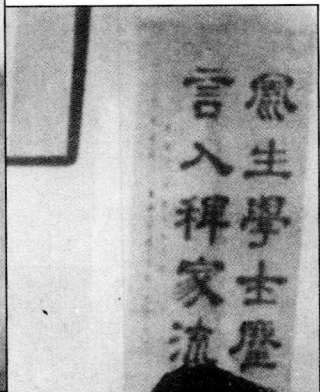 風生學士麈
言入稗家流